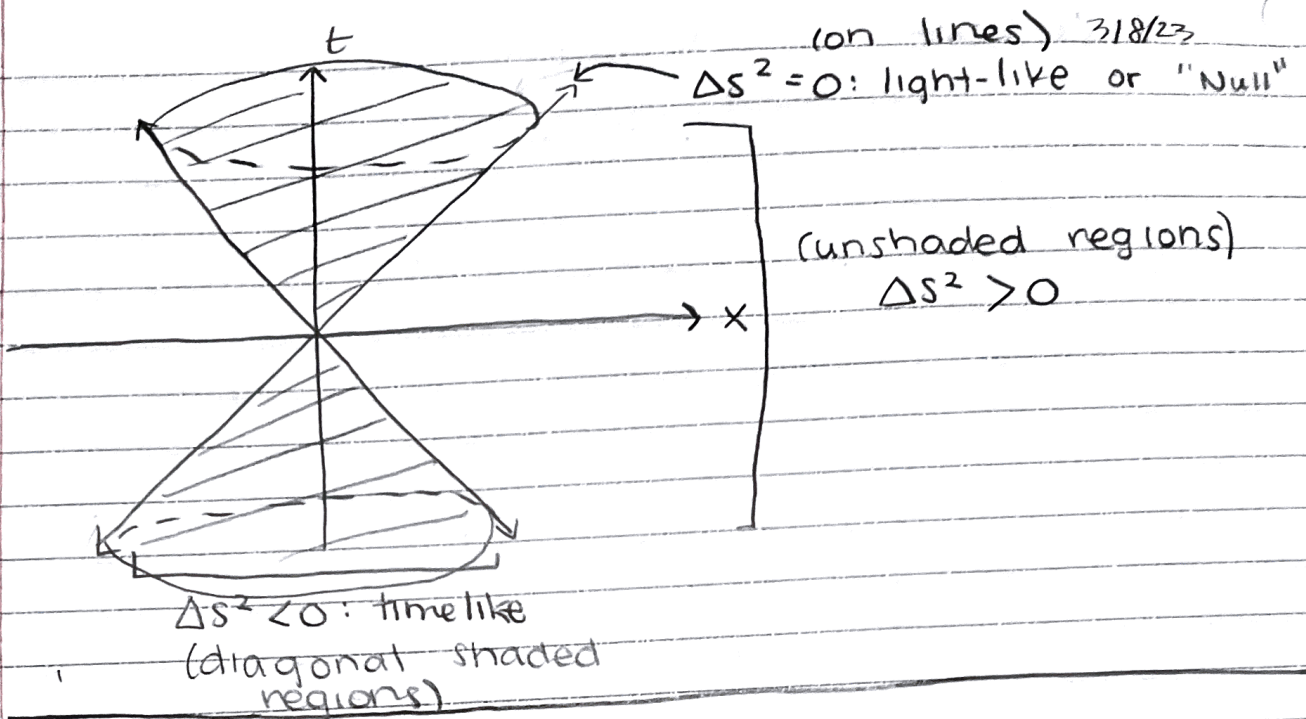 t
(on lines) 3/8/23
Δs² = 0: light-like or "Null"
(unshaded regions)
Δs² > 0
x
Δs² < 0: timelike
(diagonal shaded
regions)